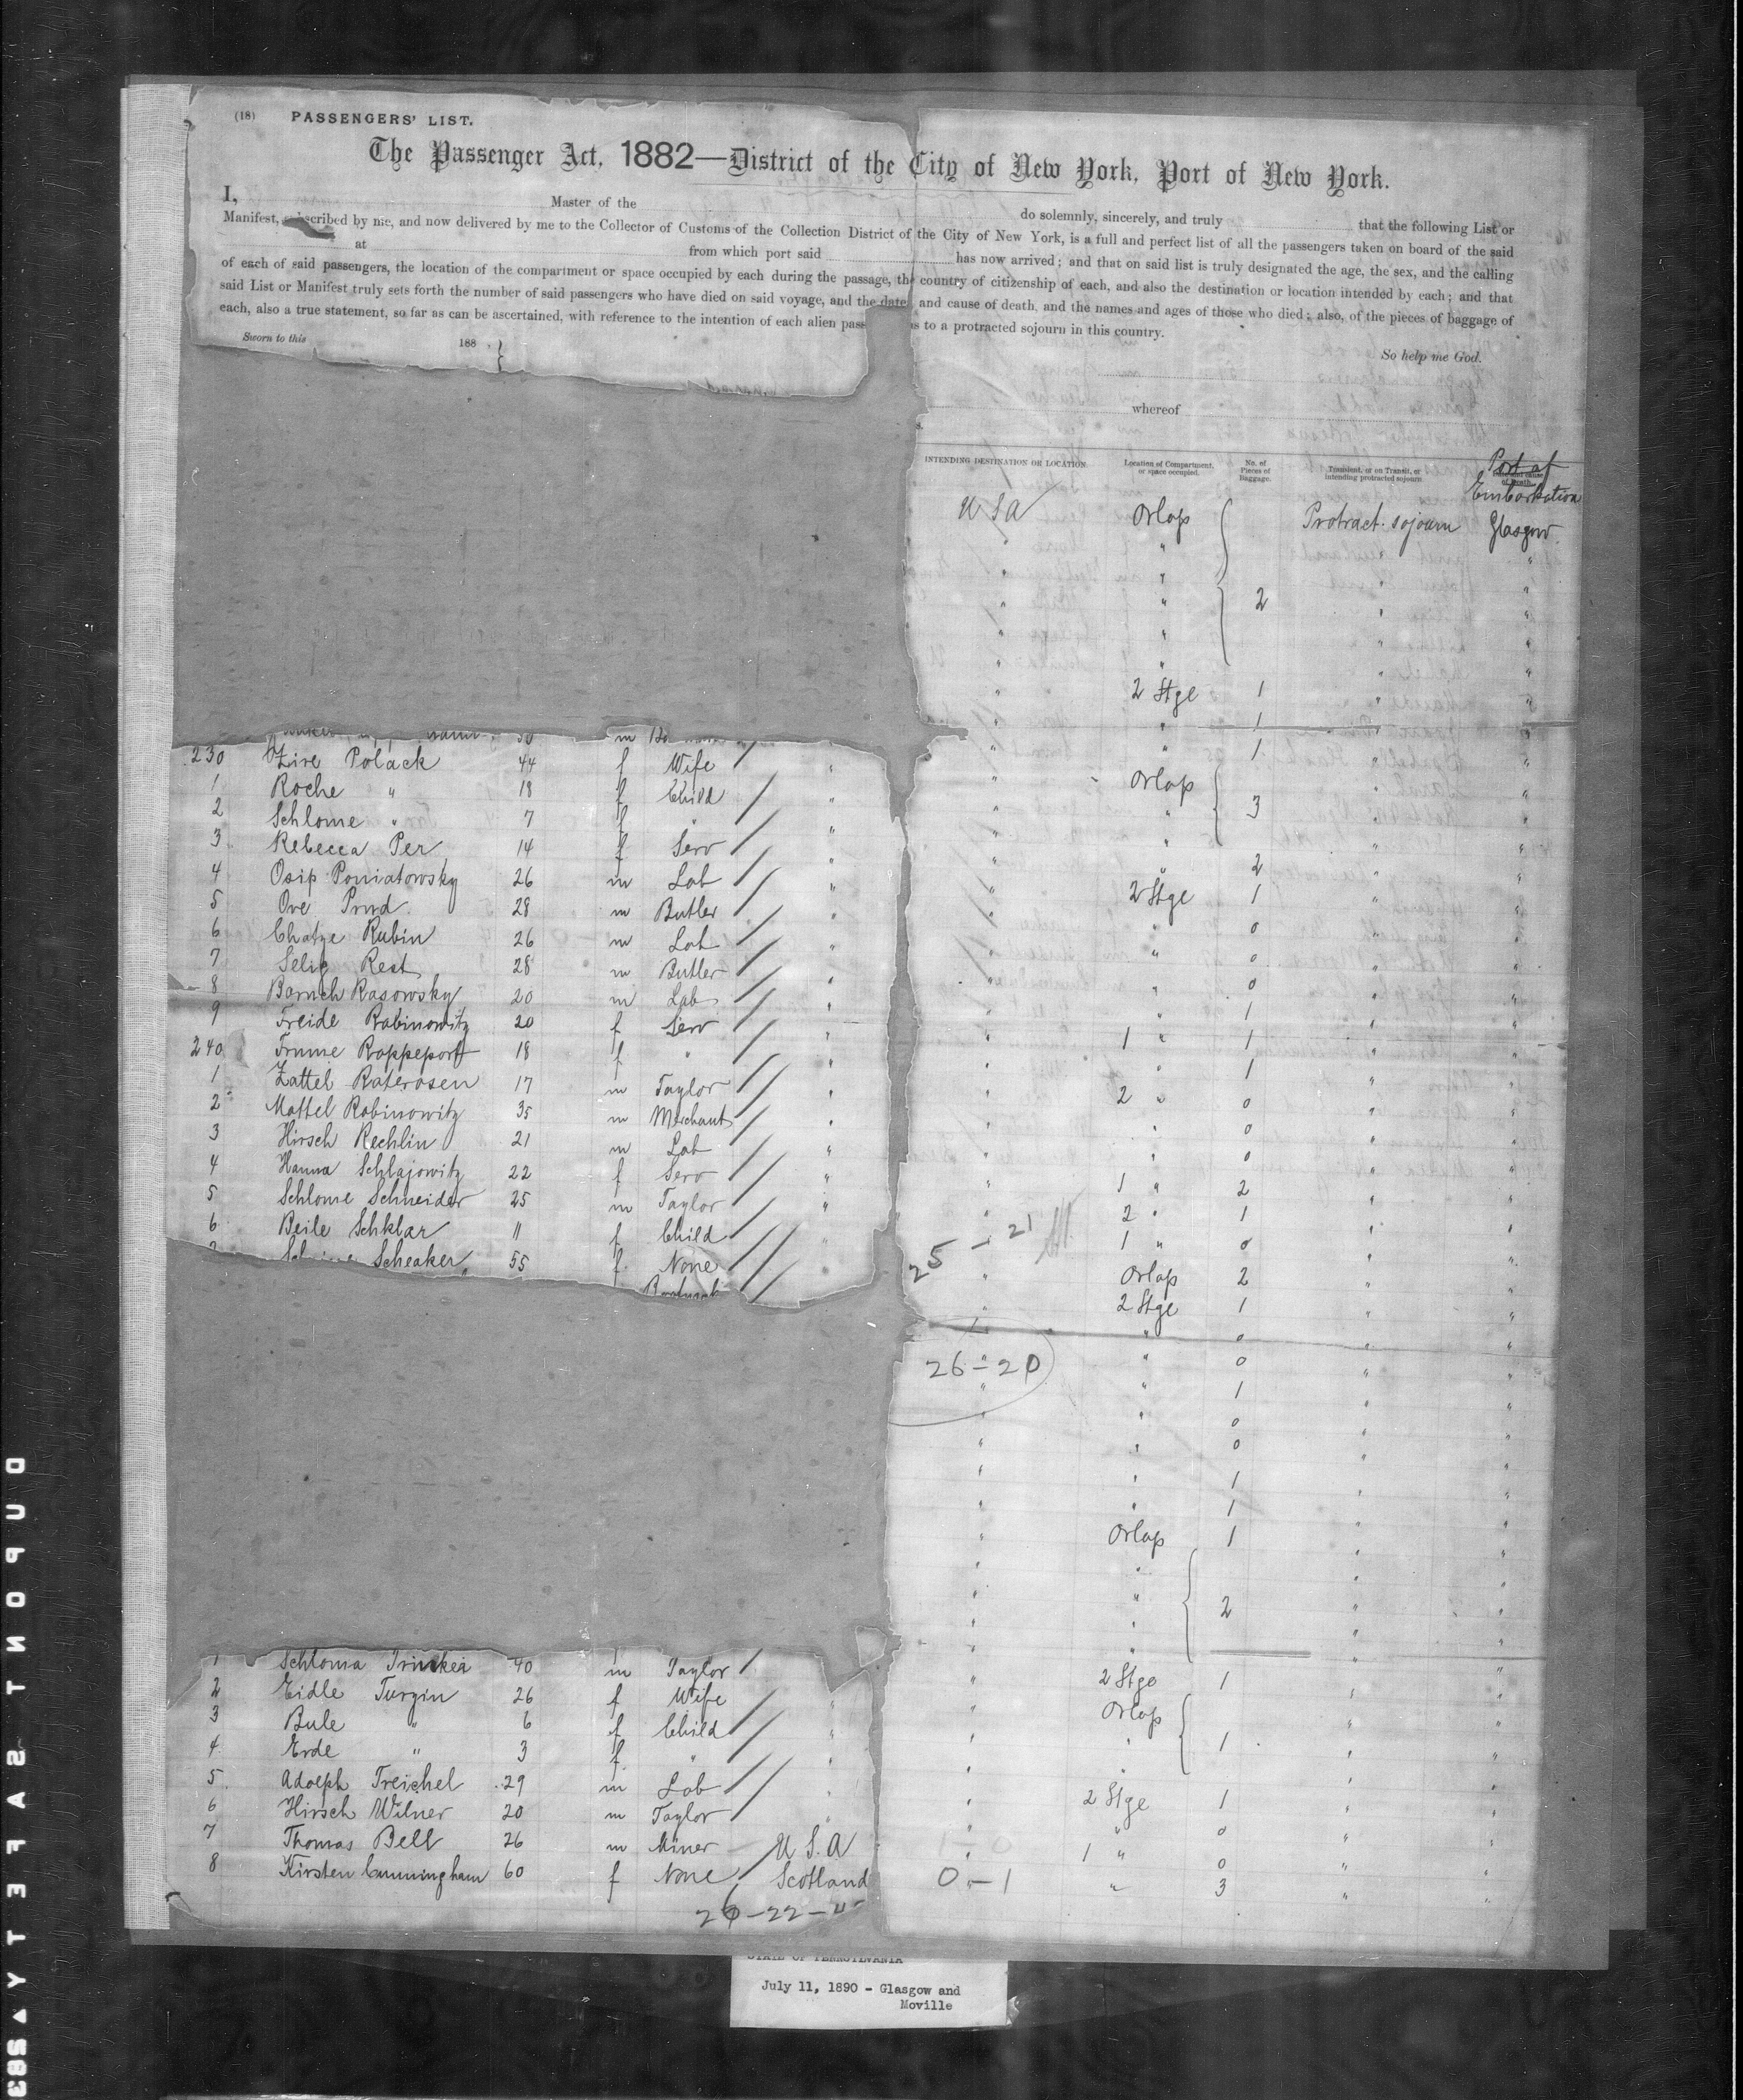 (18) PASSENGERS' LIST.
The Passenger Act, 1882—District of the City of New York, Port of New York.
I, Master of the do solemnly, sincerely, and truly that the following List or
Manifest, subscribed by me, and now delivered by me to the Collector of Customs of the Collection District of the City of New York, is a full and perfect list of all the passengers taken on board of the said
at from which port said has now arrived; and that on said list is truly designated the age, the sex, and the calling
of each of said passengers, the location of the compartment or space occupied by each during the passage, the country of citizenship of each, and also the destination or location intended by each; and that
said List or Manifest truly sets forth the number of said passengers who have died on said voyage, and the date and cause of death, and the names and ages of those who died; also, of the pieces of baggage of
each, also a true statement, so far as can be ascertained, with reference to the intention of each alien pass s to a protracted sojourn in this country.
Sworn to this 188 }
So help me God.
whereof
s.
INTENDING DESTINATION OR LOCATION Location of Compartment, or space occupied. No. of Pieces of Baggage. Transient, or on Transit, or intending protracted sojourn Port of Embarkation
USA Orlop Protract. sojourn Glasgow
" " "
" " "
" " 2 " "
" " " "
" " " "
" 2 Stge 1 " "
" 1 " "
230 Zire Polack 44 f Wife " " " 1 "
1 Roche " 18 f Child " " Orlop "
2 Schlome " 7 f " " " " 3 " "
3 Rebecca Per 14 f Serv " " " " "
4 Osip Poniatowsky 26 m Lab " " " 2 " "
5 Ove Prud 28 m Butler " " 2 Stge 1 " "
6 Chatze Rubin 26 m Lab " " " 0 " "
7 Selig Rest 28 m Butler " " " 0 " "
8 Baruch Rasowsky 20 m Lab " " " 0 " "
9 Freide Rabinowitz 20 f Serv " " 1 " "
240 Frume Rappeport 18 f " " " 1 " 1 " "
1 Zattel Raterosen 17 m Taylor " " " 1 " "
2 Mottel Rabinowitz 35 m Merchant " " 2 " 0 " "
3 Hirsch Rechlin 21 m Lab " " " 0 " "
4 Hanna Schlajowitz 22 f Serv " " " 0 " "
5 Schlome Schneider 25 m Taylor " " 1 " 2 " "
6 Beile Schklar 11 f Child " " 2 " 1 " "
Scheaker 55 f None 1 " 0 " "
25 - 21
" Orlop 2 " "
" 2 Stge 1 " "
" 0 " "
26 - 20 " 0 " "
" " 1 " "
" 0 " "
" " 0 " "
" " 1 " "
" " 1 " "
" Orlop 1 " "
" " " "
" " 2 " "
" " " "
1 Schloma 40 m Taylor " " " "
2 Eidle Turgin 26 f Wife " " 2 Stge 1 " "
3 Bule " 6 f Child " " Orlop " "
4 Erde " 3 f " " " " 1 " "
5 Adolph Treichel 29 m Lab " " " "
6 Hirsch Wilner 20 m Taylor " " 2 Stge 1 " "
7 Thomas Bell 26 m Miner U S. A " " 0 " "
8 Kirsten Cunningham 60 f None Scotland 1 " 0 " "
0 - 1 " 3 " "
26-22-
STATE OF PENNSYLVANIA
July 11, 1890 - Glasgow and
Moville
DUPONT SAFETY